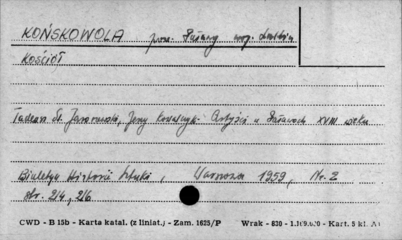 KOŃSKOWOLA pow. Puławy woj. Lublin
KOŚCIÓŁ
Tadeusz St. Jaroszewski, Jerzy Kowalczyk: Artyści w Puławach XVIII wieku
Biuletyn Historii Sztuki, Warszawa 1959, Nr. 2
str. 214, 216
CWD - B 15b - Karta katal. (z liniat.) - Zam. 1625/P Wrak - 630 - Kart. 5 kl. A1